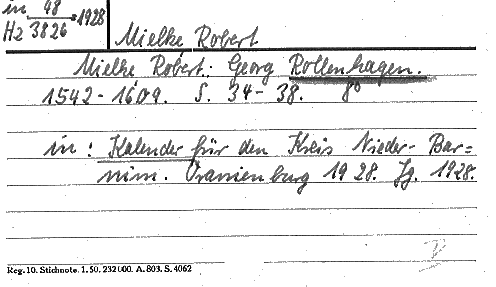 in 48
Hz 3826 = 1928
Mielke Robert
Mielke Robert: Georg Rollenhagen.
1542-1609. S. 34-38. 8°
in: Kalender für den Kreis Nieder-Bar=
nim. Oranienburg 1928. Jg. 1928.
Reg. 10. Stichnote. 1. 50. 232000. A. 803. S. 4062